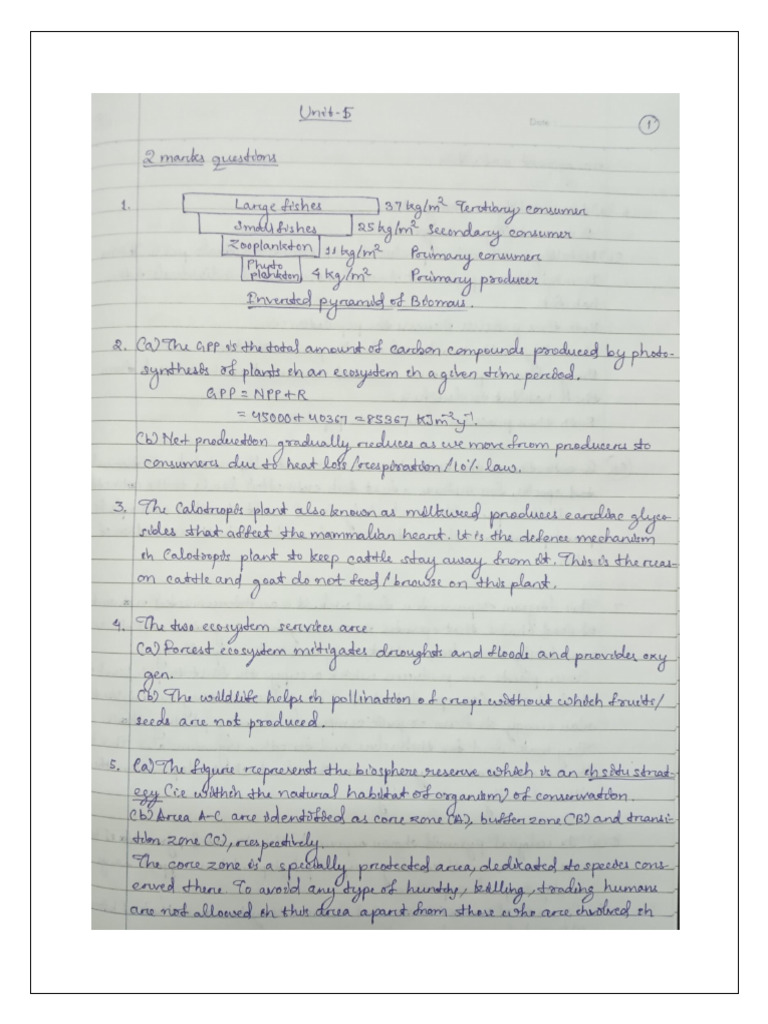 Unit-5
Date
1
2 marks questions
1. Large fishes 37 kg/m² Tertiary consumer
Small fishes 25 kg/m² Secondary consumer
Zooplankton 11 kg/m² Primary consumer
Phyto plankton 4 kg/m² Primary producer
Inverted pyramid of Biomass.
2. (a) The GPP is the total amount of carbon compounds produced by photo-
synthesis of plants in an ecosystem in a given time period.
GPP = NPP + R
= 45000 + 40367 = 85367 KJm⁻²y⁻¹.
(b) Net production gradually reduces as we move from producers to
consumers due to heat loss/respiration/10% law.
3. The Calotropis plant also known as milkweed produces cardiac glyco-
sides that affect the mammalian heart. It is the defence mechanism
in Calotropis plant to keep cattle stay away from it. This is the reas-
on cattle and goat do not feed/browse on this plant.
4. The two ecosystem services are
(a) Forest ecosystem mitigates droughts and floods and provides oxy
gen.
(b) The wildlife helps in pollination of crops without which fruits/
seeds are not produced.
5. (a) The figure represents the biosphere reserve which is an in situ strat-
egy (ie within the natural habitat of organism) of conservation.
(b) Area A-C are identified as core zone (A), buffer zone (B) and transi-
tion zone (C), respectively.
The core zone is a specially protected area, dedicated to species cons-
erved there. To avoid any type of hunting, killing, trading humans
are not allowed in this area apart from those who are involved in